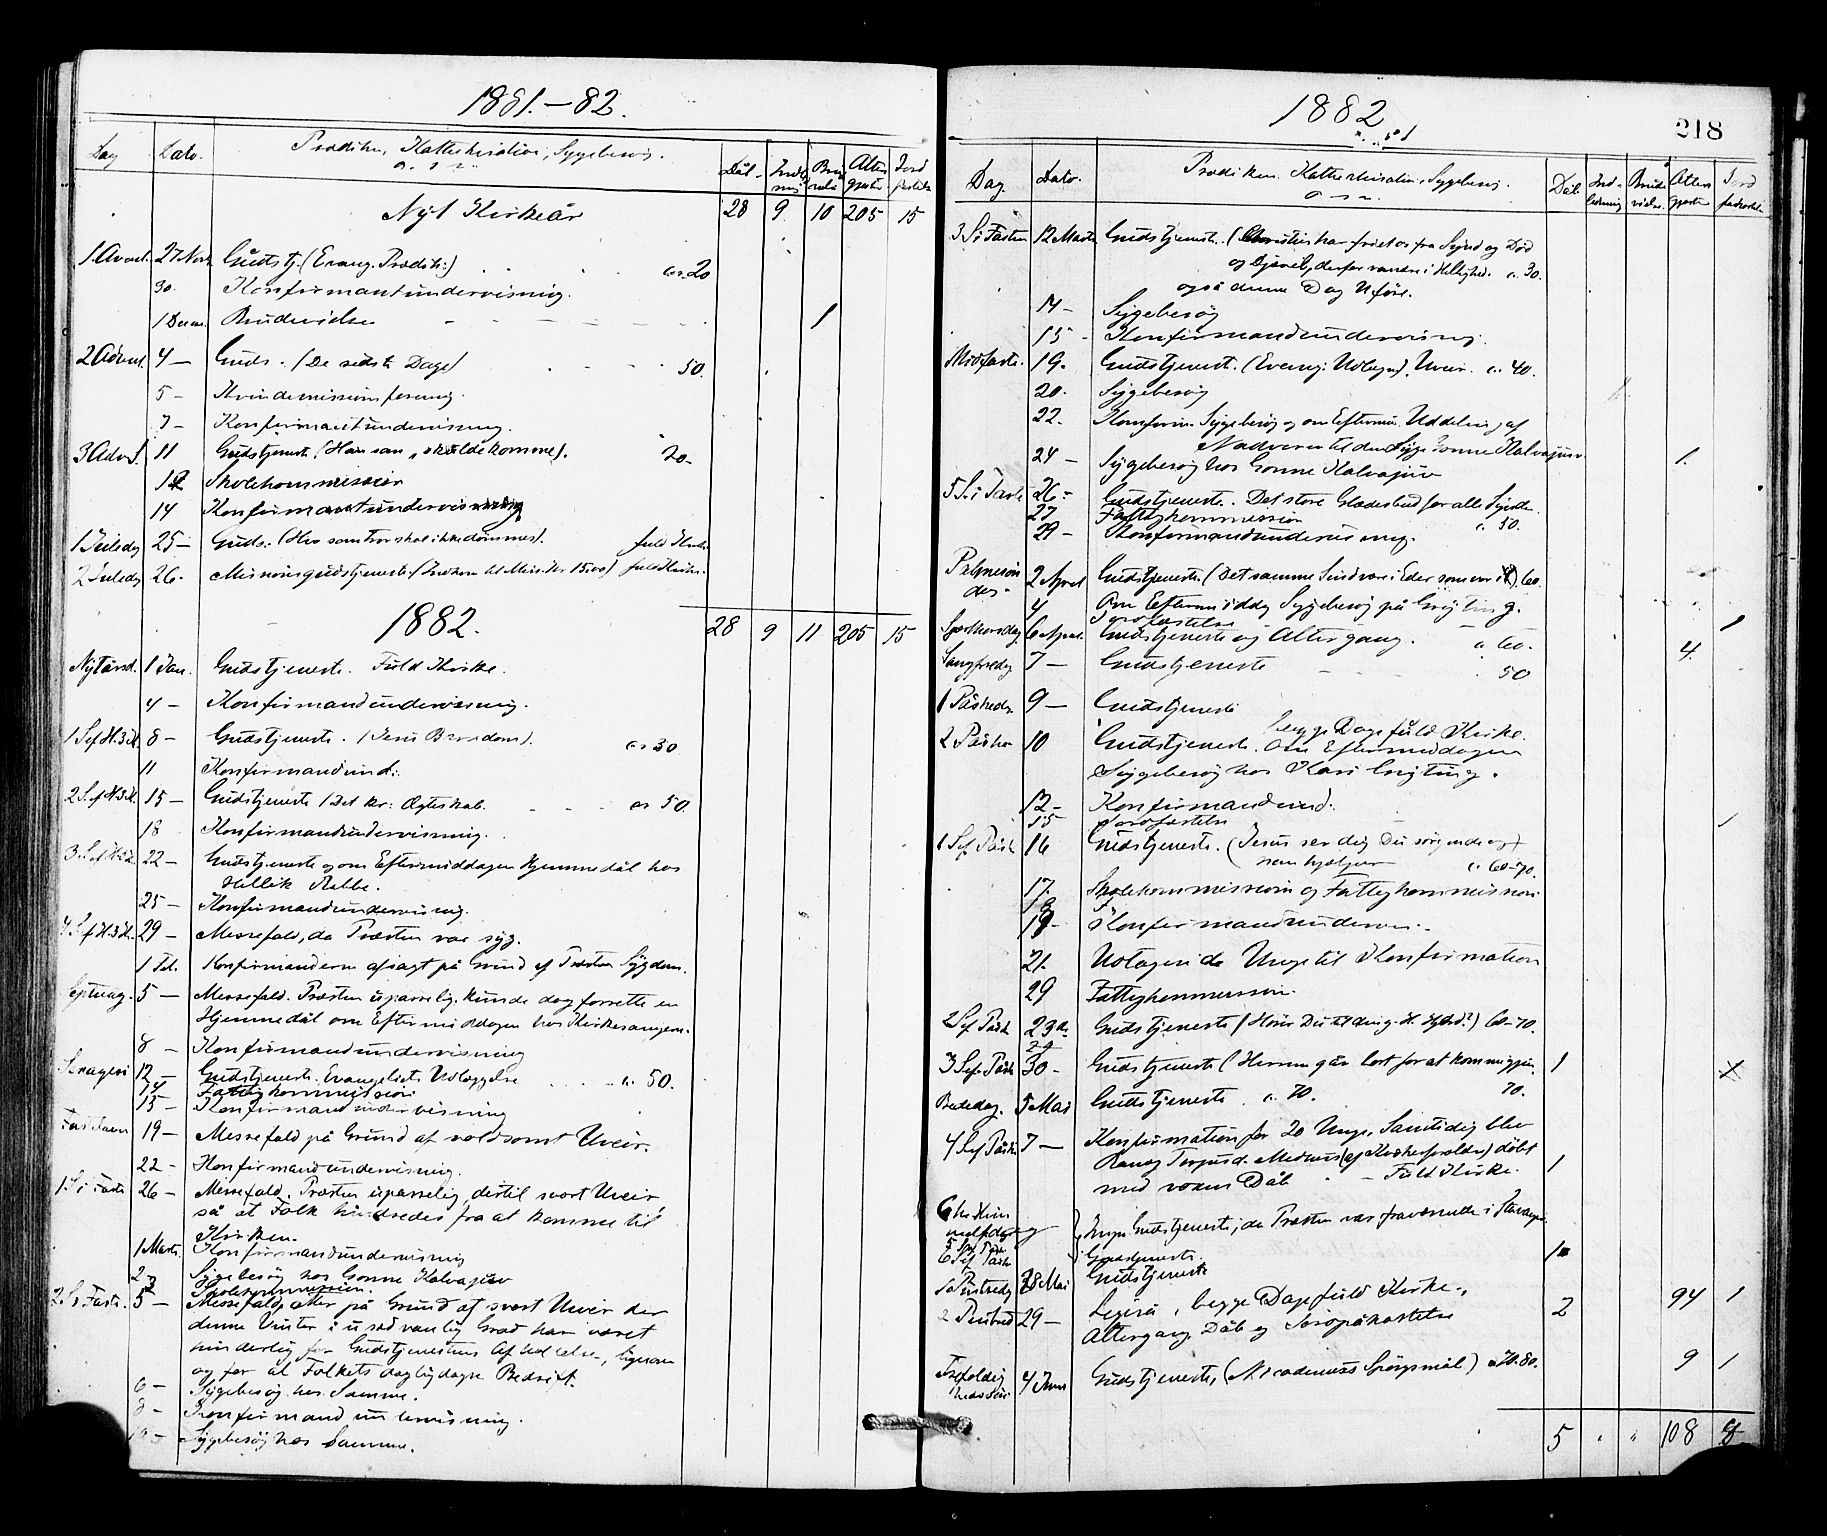 1881.-82.
Dag Dato. Prædiken, Katekisation, Sygebesøg. Dåb Altergæster
o. s. v.
Nyt Kirkeår 28 9 10 205 15
1 Advent 27 Novb. Gudstj. (Evang. Prædik:) ca. 20
30. Konfirmantundervisning.
1 Decem. Brudevielse 1
2 Advent. 4 – Guds. (De sidste Dage) 50.
5 – Kvindemissionsforening.
7 – Konfirmantundervisning.
3 Advt. 11 Gudstjeneste. (Han som "skulde komme). 20-
12 Skolekommission
14 Konfirmantundervisning
1 Juledag 25 – Guds. (Hvo som tror skal ikke dømmes). fuld Kirke
2 Juledag 26. Missionsgudstjeneste. fuld Kirke.
1882. 28 9 11 205 15
Nytårsd. 1 Jan. Gudstjeneste. Fuld Kirke.
4 – Konfirmandundervisning.
1 S ef H.3.K. 8 – Gudstjeneste. (Jesu Barndom). ca 30
11 Konfirmandund:
2 S. ef H3K. 15 – Gudstjeneste (Det kr: Ægteskab. ca 50.
18 Konfirmandundervisning.
3 S. ef H3K. 22 – Gudstjeneste og om Eftermiddagen Hjemmedåb hos
Hellik
25 – Konfirmandundervisning.
4 S. ef H.3.K. 29 – Messefald, da Præsten var syg.
1 Feb. Konfirmanderne afsagt på Grund af Præstens Sygdom.
Septuag. 5 – Messefald. Præsten upasselig, kunde dog forrette en
Hjemmedåb om Eftermiddagen hos Kirkesangeren.
8 – Konfirmandundervisning
12 – Gudstjeneste. Evangeliets Udlæggelse c. 50.
14 Fattigkommission
15 – Konfirmandundervisning
Fastelavn 19 – Messefald på Grund af voldsomt Uveir.
22 – Konfirmandundervisning.
1 S i Faste 26 – Messefald. Præsten upasselig, dertil svort Uveir,
så at Folk hindredes fra at komme til
Kirken.
1 Marts. Konfirmandundervisning
2 – Sygebesøg hos Gonne Kalvajuv
3 Skolekommission.
2 S. i Faste. 5 – Messefald på Grund af svort Uveir der
denne Vinter i usedvanlig Grad har været
hinderlig for Gudstjenestens Afholdelse, ligesom
og for al Folkets dagligdagse Bedrift.
6 – Sygebesøg hos Samme.
8 – Konfirmandundervisning.
Sygebesøg hos Samme.
1882
218
Dag. Dato. Prædiken. Katekisation, Sygebesøg. Dåb. Indledning Brudevielse. Altergæster
o. s. v.
3 S i Fasten 12 Marts Gudstjeneste. (Christus har friet os fra Synd og Død
og Djævel, derfor vandre i Hellighed. c. 30.
også denne Dag Uføre.
14 – Sygebesøg
15 – Konfirmandundervisning.
Midfaste. 19. Gudstjenest. (Evang: Udlægn.) Uveir. c. 40.
20. Sygebesøg
22. Konfirm. Sygebesøg og om Efterm. Uddeling af
Nadveren til den Syge Gonne Kalvajuv. 1.
24 – Sygebesøg hos Gonne Kalvajuv
5 S. i Faste 26 – Gudstjeneste. Det store Glædesbud for alle Syndere
27 Fattigkommission c. 50.
29 – Konfirmandundervisning.
Palmesøndag 2 April Gudstjeneste. (Det samme Sind være i Eder som var i K). 60.
4 Om Eftermiddag Sygebesøg på
Jordfæstelse 1
Skjærthorsdag 6 April. Gudstjeneste og Altergang. c. 60. 4.
Langfredag 7 – Gudstjeneste 50
1 Påskedag 9 – Gudstjeneste
begge Dage fuld Kirke.
2 Påske 10 Gudstjeneste. Om Eftermiddagen
Sygebesøg hos Kari
12 – Konfirmandund.
15 Jordfæstelse 1
1 S ef Påsk 16 Gudstjeneste. (Jesus ser dig Du sørgende og)
som hjælper c. 60-70.
17. Skolekommission og Fattigkommission
19 – Konfirmandunderv.
21. Udtagen de Unge til Konfirmation
29 Fattigkommission.
2 S ef Påsk 23de Gudstjeneste 60-70.
3 S ef Påsk 30 – Gudstjeneste (Herren går bort for at komme igjen. 1
70.
Bededag. 5 Mai Gudstjeneste. c. 70.
4 S ef Påske 7 – Konfirmation for 20 Unge, Samtidig blev
døbt
med voxen Dåb – Fuld Kirke. 1
Ingen Gudstjeneste, da Præsten var fraværende i Stavanger.
6 S ef Påsk Gudstjeneste. 1
1ste Pintsedag 28 Mai Gudstjeneste
2 Pintsed 29 – Ligeså, begge Dage fuld Kirke.
Altergang, Dåb og Jordpåkastelse 2 94 1
Trefoldigheds Søn 4 Juni Gudstjeneste, (Nicodemus Spørgsmål) c 70-80. 9 1
5 " " 108 8